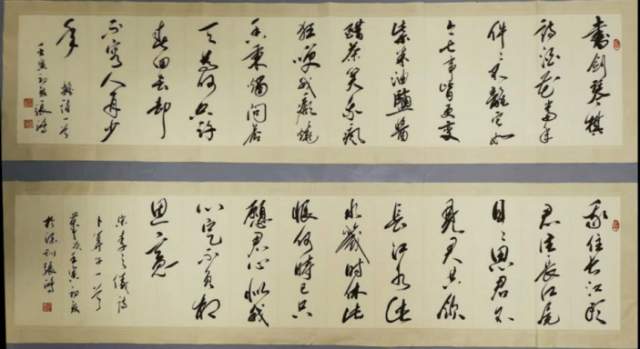 書劍琴棋
詩酒花當年
件件不離它如
今七事皆更變
柴米油鹽醬
醋茶笑我瘋
狂我燒
香秉燭問蒼
天為何只許
春回却
不容人再少
年
錄詩一首
壬寅初秋張鴻
我住長江頭
君住長江尾
日日思君不
見君共飲
長江水此
水幾時休此
恨何時已只
願君心似我
心定不負相
思意
宋李之儀詩
卜算子一首
歲次壬寅初秋
於深圳張鴻